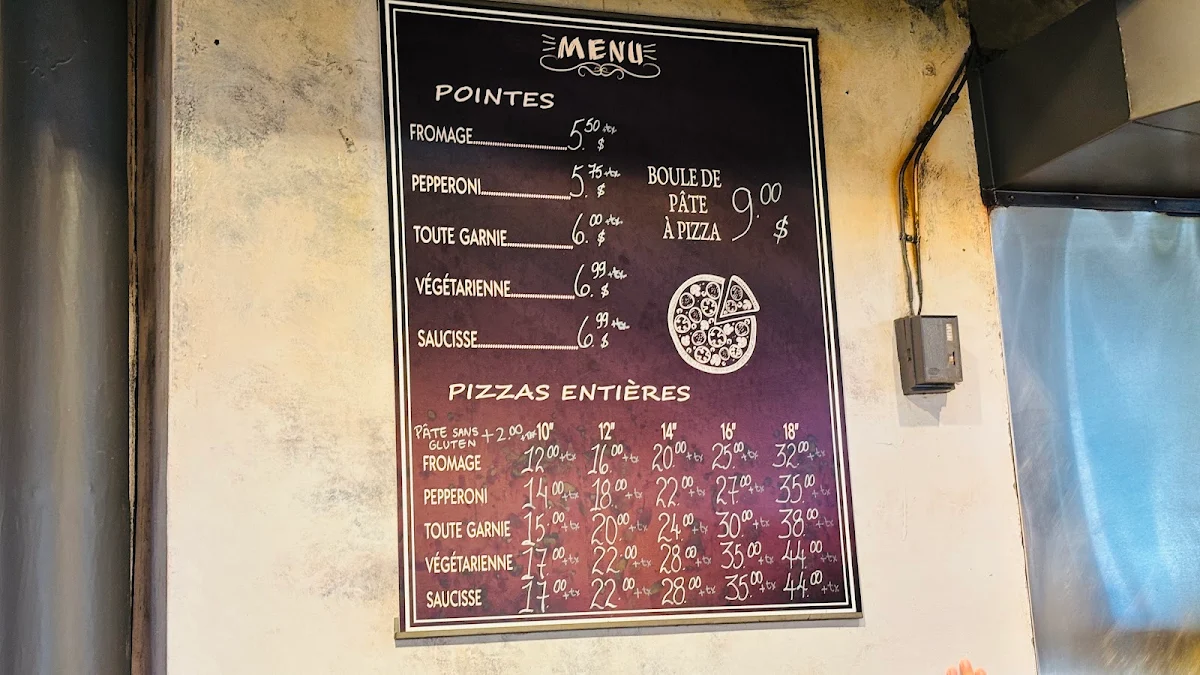 MENU
POINTES
FROMAGE 5.50 +tx $
PEPPERONI 5.75 +tx $
TOUTE GARNIE 6.00 +tx $
VÉGÉTARIENNE 6.99 +tx $
SAUCISSE 6.99 +tx $
BOULE DE
PÂTE
À PIZZA
9.00 $
PIZZAS ENTIÈRES
PÂTE SANS
GLUTEN +2.00 +tx
10" 12" 14" 16" 18"
FROMAGE 12.00+tx 16.00+tx 20.00+tx 25.00+tx 32.00+tx
PEPPERONI 14.00+tx 18.00+tx 22.00+tx 27.00+tx 35.00+tx
TOUTE GARNIE 15.00+tx 20.00+tx 24.00+tx 30.00+tx 38.00+tx
VÉGÉTARIENNE 17.00+tx 22.00+tx 28.00+tx 35.00+tx 44.00+tx
SAUCISSE 17.00+tx 22.00+tx 28.00+tx 35.00+tx 44.00+tx